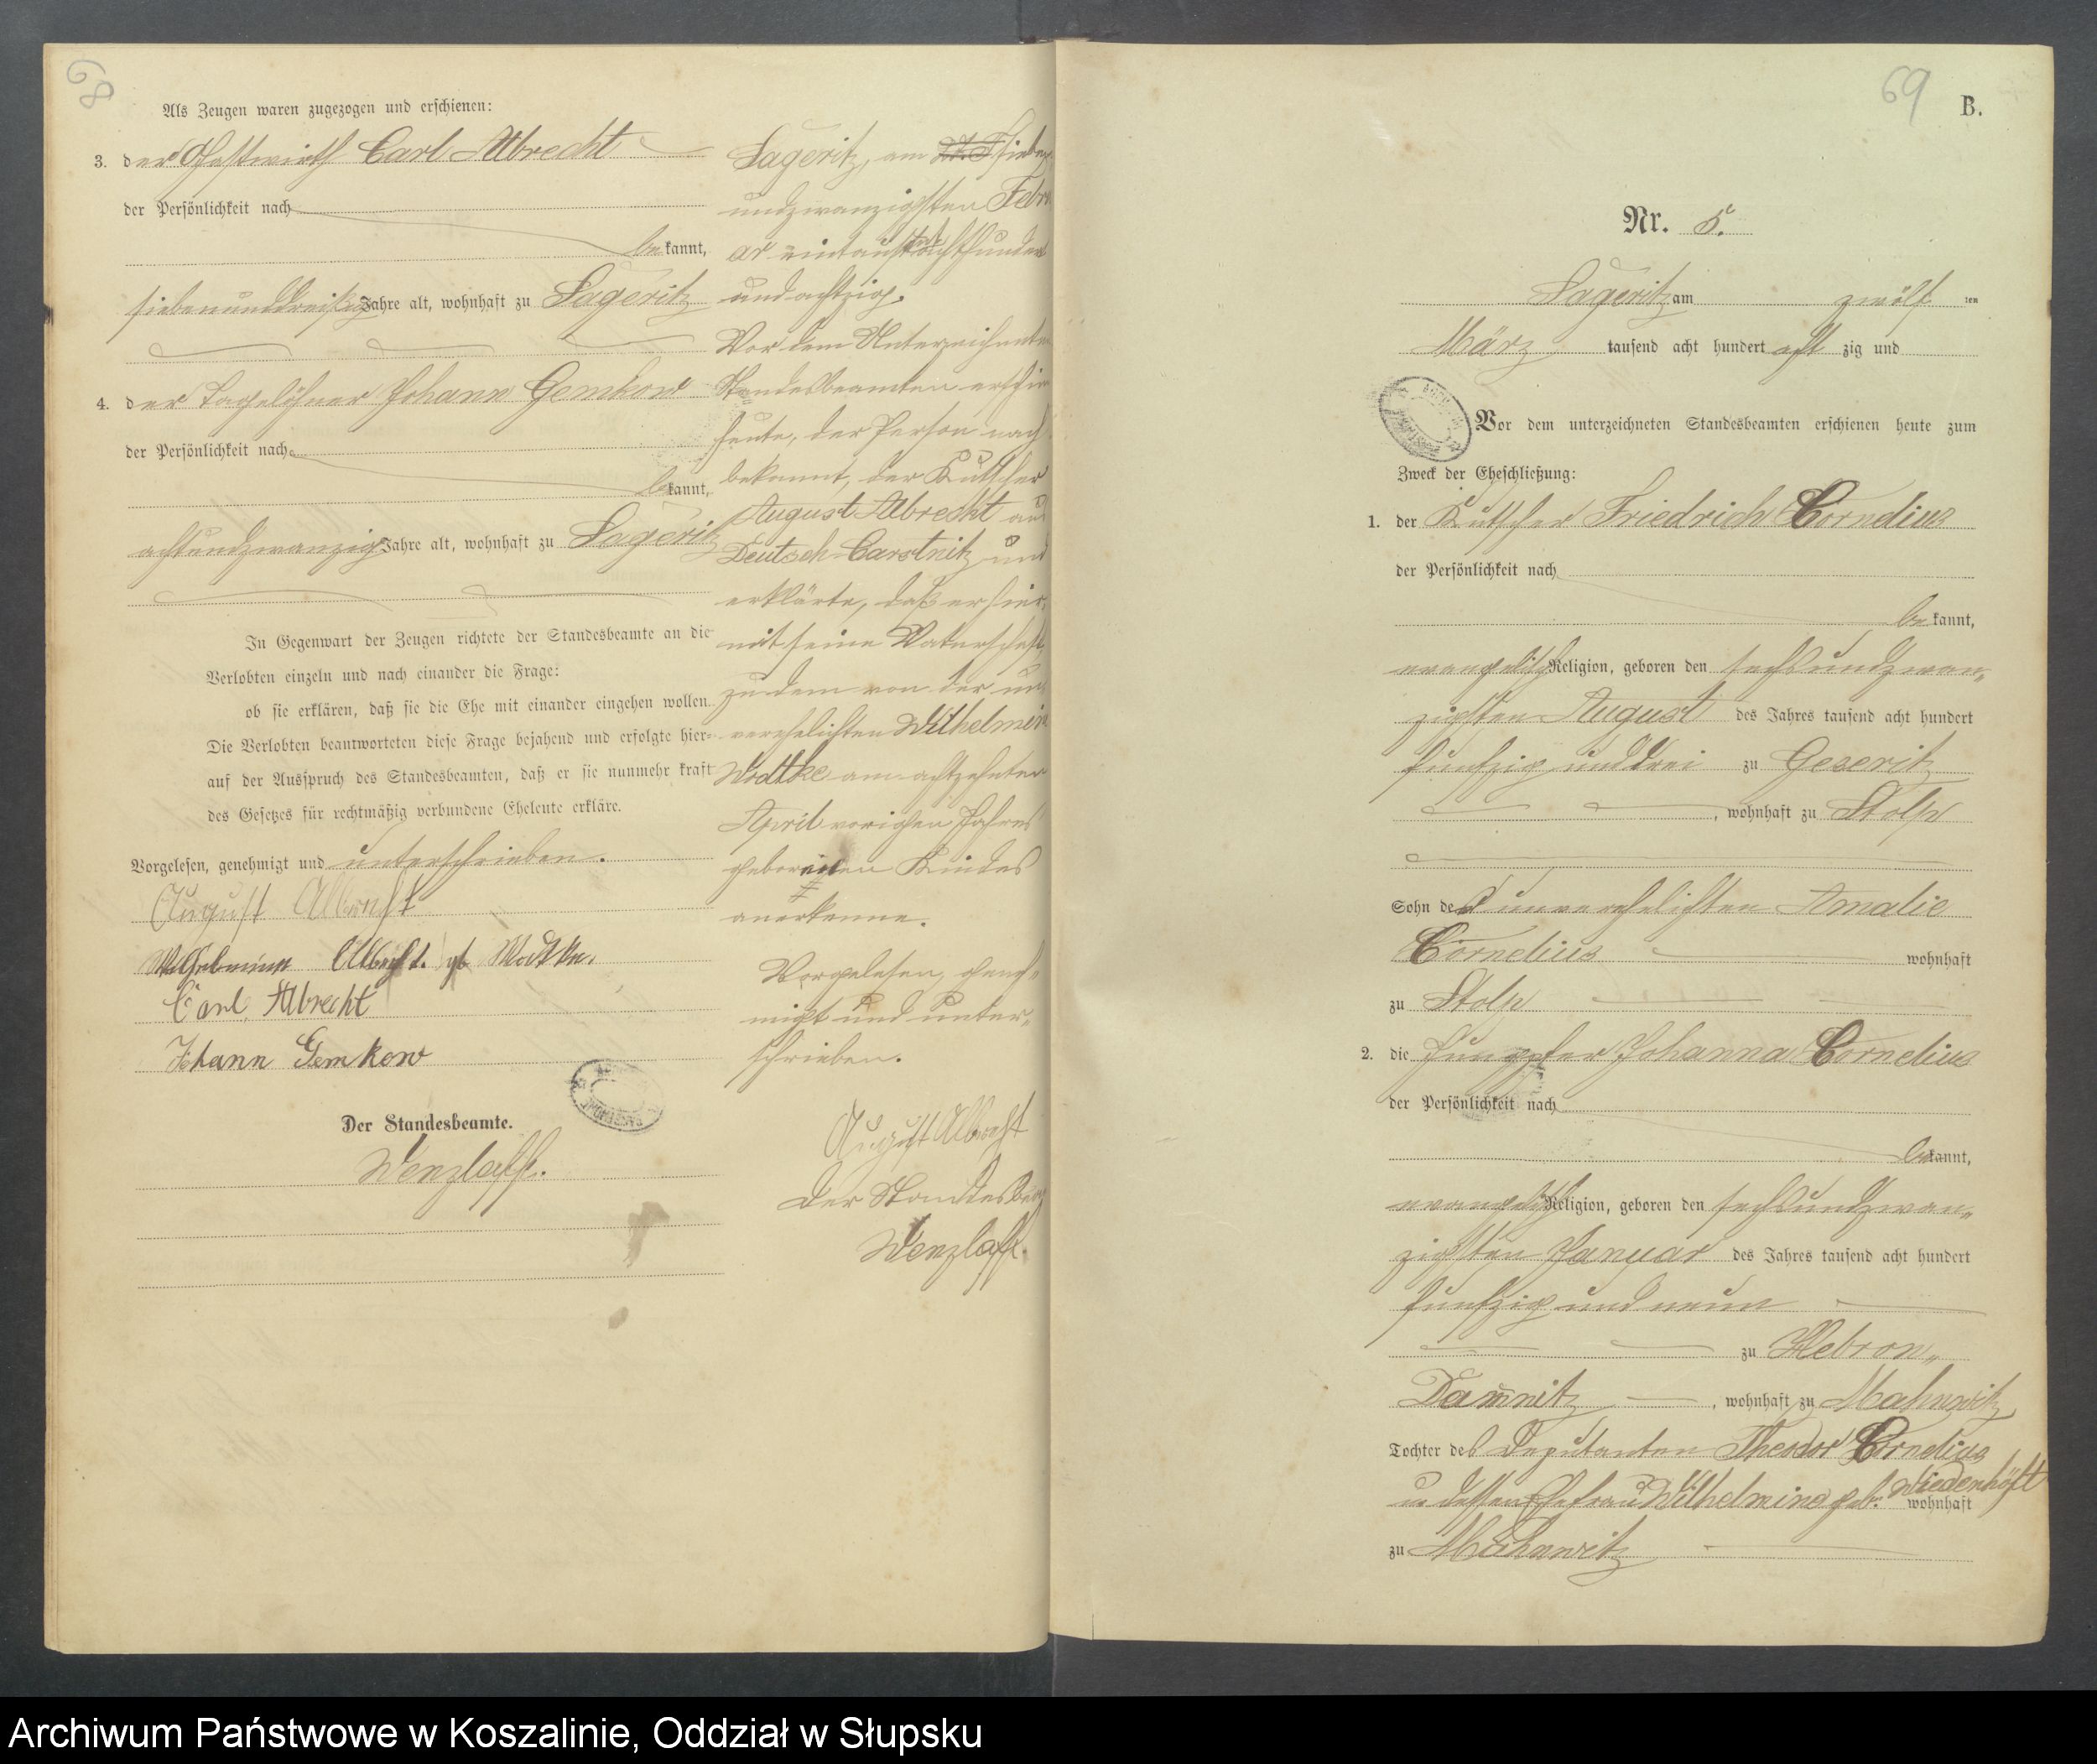 68
Als Zeugen waren zugezogen und erschienen:
3. der Gastwirth Carl Albrecht
der Persönlichkeit nach
bekannt,
siebenunddreißig Jahre alt, wohnhaft zu Sageritz
4. der Tagelöhner Johann Gemkow
der Persönlichkeit nach
bekannt,
achtundzwanzig Jahre alt, wohnhaft zu Sageritz
In Gegenwart der Zeugen richtete der Standesbeamte an die
Verlobten einzeln und nach einander die Frage:
ob sie erklären, daß sie die Ehe mit einander eingehen wollen.
Die Verlobten beantworteten diese Frage bejahend und erfolgte hier-
auf der Ausspruch des Standesbeamten, daß er sie nunmehr kraft
des Gesetzes für rechtmäßig verbundene Eheleute erkläre.
Vorgelesen, genehmigt und unterschrieben.
August Albrecht
Wilhelmine Albrecht. geb Wodtke.
Carl Albrecht
Johann Gemkow
Der Standesbeamte.
Wenzlaff.
Sageritz, am sieben
undzwanzigsten Febru
ar eintausend achthundert
und achtzig.
Vor dem Unterzeichneten
Standesbeamten erschien
heute, der Person nach
bekannt, der Kutscher
August Albrecht aus
Deutsch-Carstnitz und
erklärte, daß er hier
mit seine Vaterschaft
zu dem von der un
verehelichten Wilhelmine
Wodtke am achtzehnten
April vorigen Jahres
geborenen Kindes
anerkenne.
Vorgelesen, geneh-
migt und unter-
schrieben.
August Albrecht
Der Standesbeam
Wenzlaff.
69
B.
Nr. 5.
Sageritz am zwölf ten
März tausend acht hundert acht zig und
Vor dem unterzeichneten Standesbeamten erschienen heute zum
Zweck der Eheschließung:
1. der Kutscher Friedrich Cornelius
der Persönlichkeit nach
bekannt,
evangelisch Religion, geboren den sechsundzwan-
zigsten August des Jahres tausend acht hundert
funfzig und drei zu Geseritz
, wohnhaft zu Stolp
Sohn der unverehelichten Amalie
Cornelius wohnhaft
zu Stolp
2. die Jungfer Johanna Cornelius
der Persönlichkeit nach
bekannt,
evangelisch Religion, geboren den sechsundzwan-
zigsten Januar des Jahres tausend acht hundert
funfzig und neun
zu Hebron-
Damnitz, wohnhaft zu Mahnwitz
Tochter des Deputanten Theodor Cornelius
u dessen Ehefrau Wilhelmine geb. Wiedenhöft wohnhaft
zu Mahnwitz
Archiwum Państwowe w Koszalinie, Oddział w Słupsku